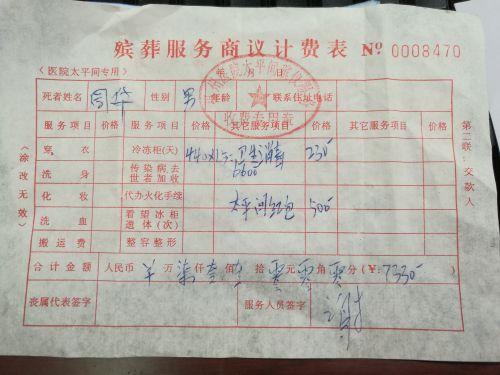 殡葬服务商议计费表 № 0008470
（医院太平间专用） 年 月 日
死者姓名 性别 男 年龄 联系住址电话
服务项目 价格 服务项目 价格 其它服务项目 价格 其它服务项目 价格
穿衣 冷冻柜(天) 230
洗身 传染病去世老加收 6600
化妆 代办火化手续 太平间红包 500
洗血 看望冰柜遗体(次)
搬运费 整容整形
合计金额 人民币 万 柒仟 佰 拾 零元 零角 零分（¥：7330
丧属代表签字 服务人员签字 谢
收费专用章
（涂改无效）
第二联：交款人